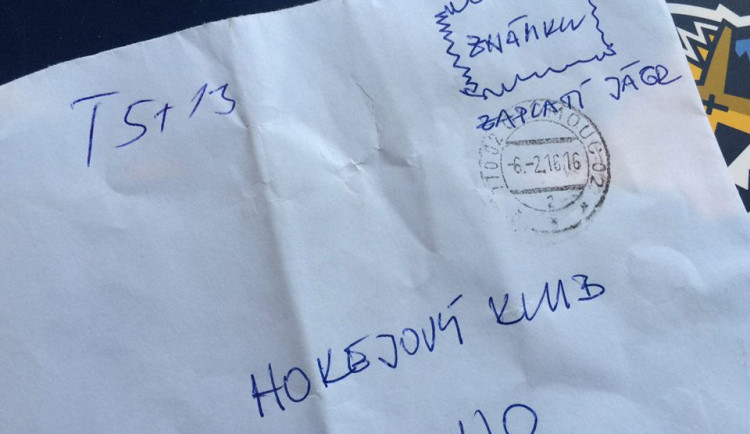 ZNÁMKU
ZAPLATÍ JÁGR
T 5+13
OLOMOUC 02
-6.-2.16.16
HOKEJOVÝ KLUB